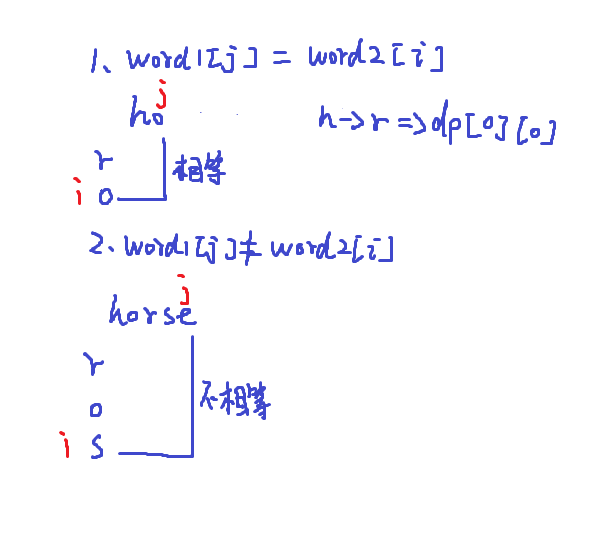 1、word1[j] = word2[i]
j
ho
h→r⇒dp[0][0]
r
相等
i o
2、word1[j]≠word2[i]
j
horse
r
不相等
o
i s